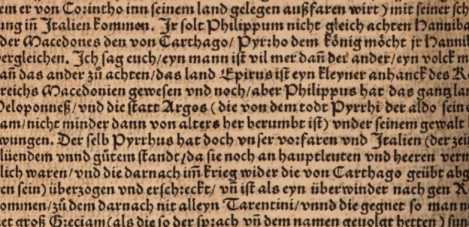 em er von Corintho inn seinem land gelegen außfaren wirt) mit seiner sch
ung in Italien kommen. Ir solt Philippum nicht gleich achten Hanniba
der Macedones den von Carthago/ Pyrrho dem könig möcht jr Hanni
vergleichen. Ich sag euch/eyn mann ist vil mer dañ der ander/eyn volck m
dañ das ander zů achten/das land Epirus ist eyn kleyner anhanck des K
reichs Macedonien gewesen vnd noch/aber Philippus hat das gantz lan
Peloponneß/vnd die statt Argos (die von dem todt Pyrrhi der aldo sein
am/nicht minder dann von alters her berumbt ist) vnder seinem gewalt
wungen. Der selb Pyrrhus hat doch vnser vorfaren vnd Italien (der zei
lüendem vnnd gůtem standt/da sie noch an hauptleuten vnd heeren verm
lich waren/vnd die darnach im̃ krieg wider die von Carthago geübt abg
en sein) überzogen vnd erschreckt/ vñ ist als eyn überwinder nach gen R
ommen/zů dem darnach nit alleyn Tarentini/vnnd die gegnet so man n
et groß Greciam (als die so der sprach vñ dem namen geuolgt hetten) sun